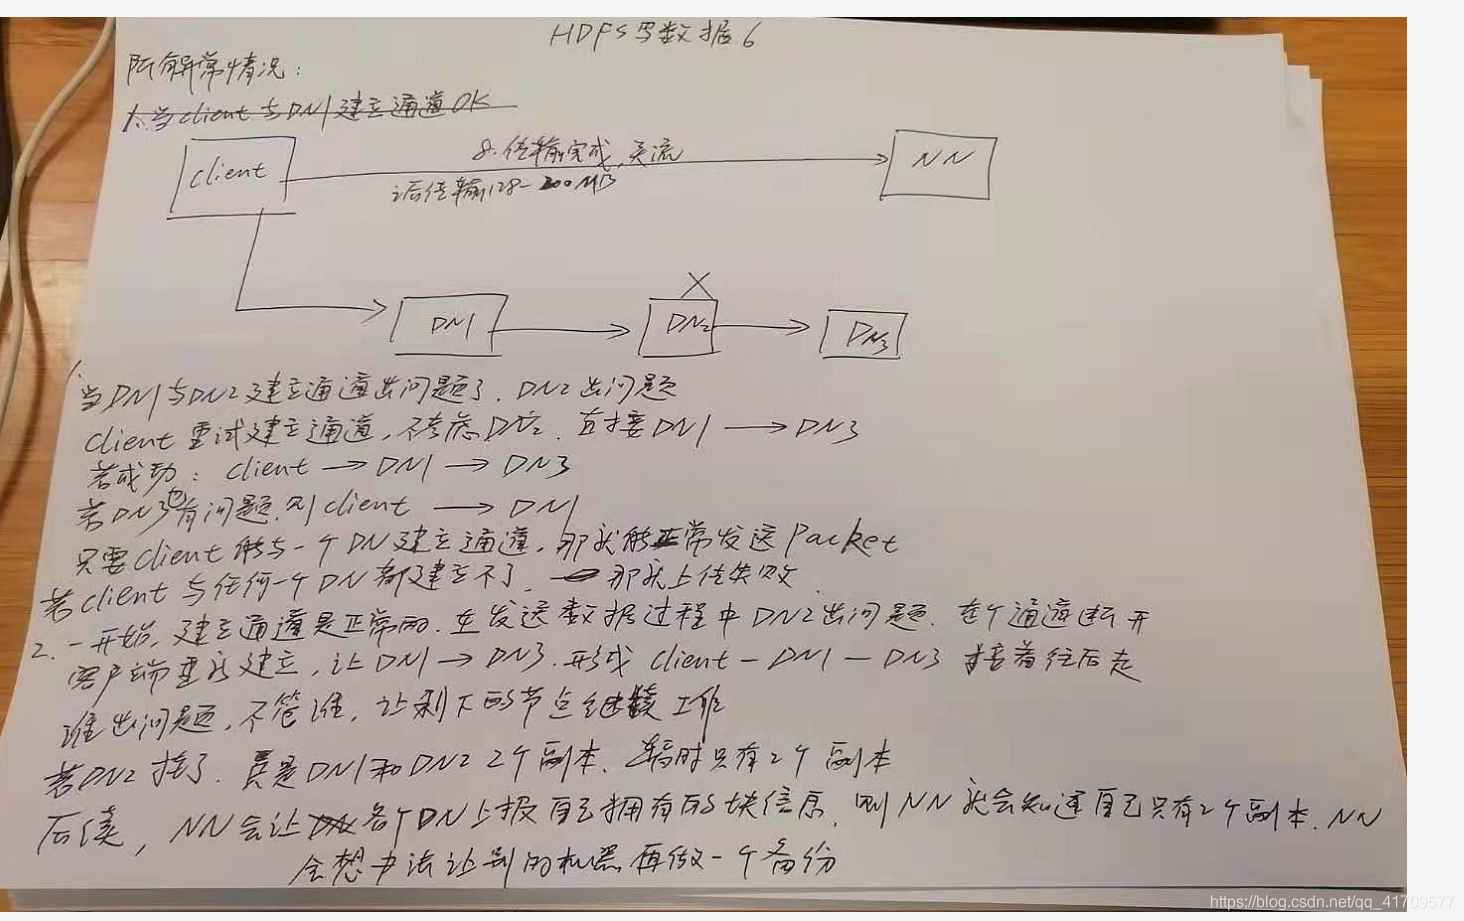 HDFS写数据6
所有异常情况：
1.当client与DN1建立通道OK
client
8.传输完成,关流
之后传输128-200MB
NN
DN1
X
DN2
DN3
1.
当DN1与DN2建立通道出问题了.DN2出问题
client重试建立通道,不考虑DN2.直接DN1→DN3
若成功：client→DN1→DN3
若DN3也有问题.则client→DN1
只要client能与一个DN建立通道,那就能正常发送Packet
若client与任何一个DN都建立不了 那就上传失败
2.一开始,建立通道是正常的.在发送数据过程中DN2出问题.整个通道断开
客户端重新建立,让DN1→DN3.形成client-DN1-DN3接着往后走
谁出问题,不管谁,让剩下的节点继续工作
若DN2挂了.真是DN1和DN2 2个副本.暂时只有2个副本
后续,NN会让各个DN上报自己拥有的块信息.则NN就会知道自己只有2个副本.NN
会想办法让别的机器再做一个备份
https://blog.csdn.net/qq_41709577